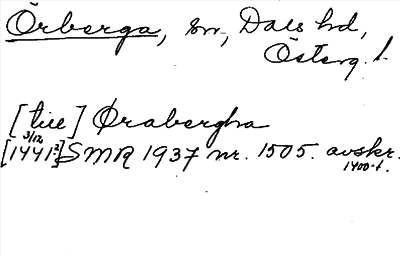 Örberga, sn, Dals hd,
Österg. l.
[tiil] Ørabergha
3/12
[1441?] SMR 1937 nr. 1505. avskr.
1400-t.